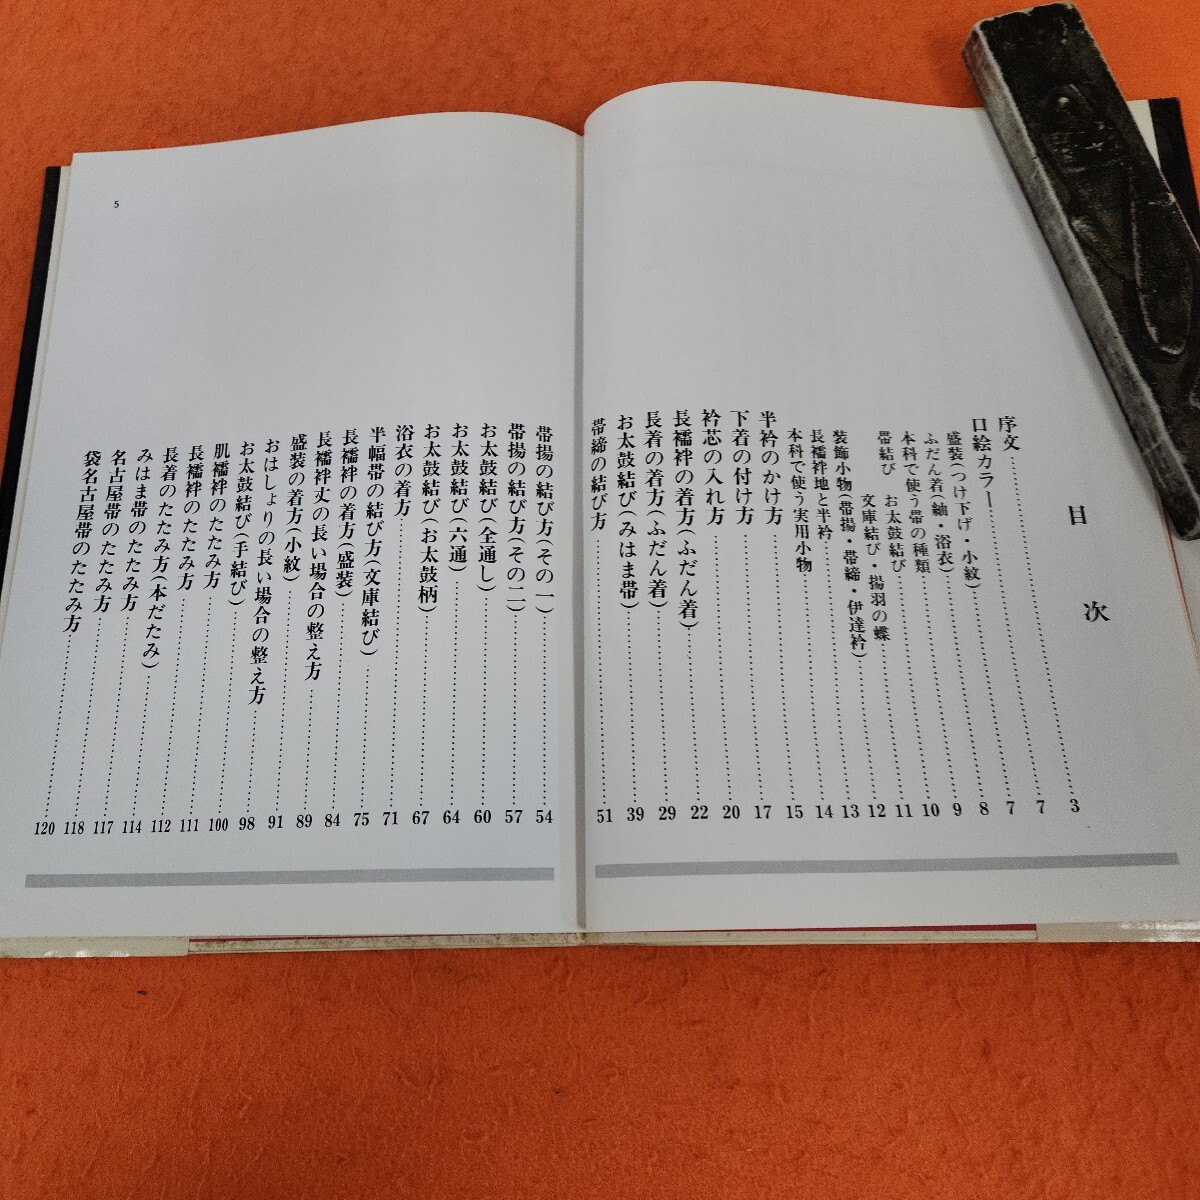 目次
序文……3
口絵カラー……7
盛装(つけ下げ・小紋)……7
ふだん着(紬・浴衣)……8
本科で使う帯の種類……9
帯結び お太鼓結び……10
文庫結び・揚羽の蝶……11
装飾小物(帯揚・帯締・伊達衿)……12
長襦袢地と半衿……13
本科で使う実用小物……14
半衿のかけ方……15
下着の付け方……17
衿芯の入れ方……20
長襦袢の着方(ふだん着)……22
長着の着方(ふだん着)……29
お太鼓結び(みはま帯)……39
帯締の結び方……51
帯揚の結び方(その一)……54
帯揚の結び方(その二)……57
お太鼓結び(全通し)……60
お太鼓結び(六通)……64
お太鼓結び(お太鼓柄)……67
浴衣の着方……71
半幅帯の結び方(文庫結び)……75
長襦袢の着方(盛装)……84
長襦袢丈の長い場合の整え方……89
盛装の着方(小紋)……91
おはしょりの長い場合の整え方……98
お太鼓結び(手結び)……100
肌襦袢のたたみ方……111
長襦袢のたたみ方……112
長着のたたみ方(本だたみ)……114
みはま帯のたたみ方……117
名古屋帯のたたみ方……118
袋名古屋帯のたたみ方……120
5